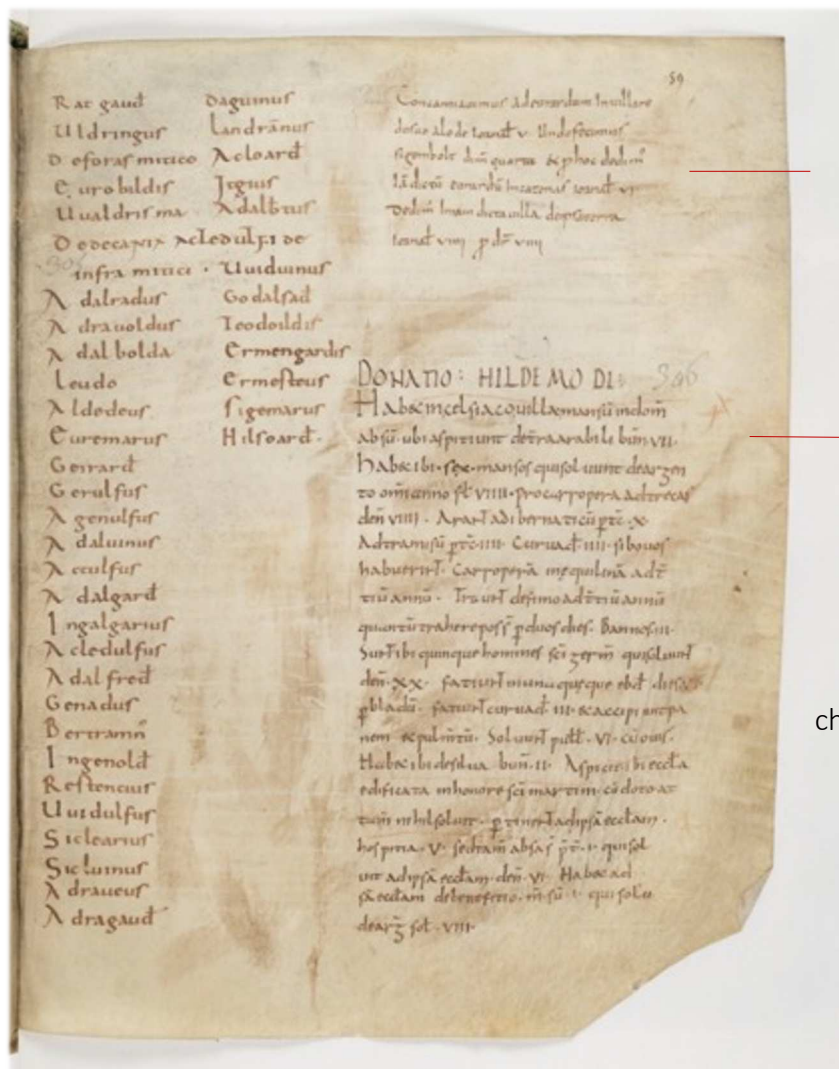 59
Rat gaud
Uldringus
De foras mitico
Eurobildis
Uualdrisma
De decania Acledulfi de
infra mitici · Uuiduinus
Adalradus
Adrauoldus
Adalbolda
Leudo
Aldedeus
Euremarus
Geirard
Gerulfus
Agenulfus
Adaluinus
Acculfus
Adalgard
Ingalgarius
Acledulfus
Adalfred
Genadus
Bertramn
Ingenold
Restencius
Uuidulfus
Siclearius
Sicluinus
Adraueus
Adragaud
Daguinus
Landranus
Acloard
Itgius
Adalbtus
Godalsad
Teodoildis
Ermengardis
Ermesteus
Sigemarus
Hilsoard ·
Concamiauimus adeurardum inuillare
v · Unde fecimus
quarta & p hoc dedim
dictu
Dedim inam dicta uilla
viiii p viiii
DONATIO : HILDEMODI : 306
Habet in celsiaco uilla mansu indom
absu · ubi aspitiunt de tra arabili bun vii ·
Habet ibi · sex · mansos qui soluunt de argen
to omi anno sol viiii · pro carropera ad trecas
den viiii · Arant ad ibernaticu ptc · x ·
Ad tramisu ptc · iiii · Curuad · iiii · si boues
habuerint · Carropera ad t
tiu annu · de fimo ad t tiu annu
quantu trahere poss p duos dies · Bannos iii ·
Sunt ibi quinque homines sci germ qui soluunt
den · xx · fatiunt inunaquaque ebd dies
p bladu · fatiunt curuad iii · & accipiunt pa
nem & pulmtu · Soluunt pull · vi · cu ouis ·
Habet ibi de silua bun · ii · Aspicit ibi eccla
edificata in honore sci martini · cu doto at
tam nihil soluit · ptinent ad ipsa ecclam ·
hospitia · v · qui sol
uit ad ipsa ecclam · den · vi · Habet ad
sa ecclam de benefitio · i · qui solu
de arg sol · viii ·
ch